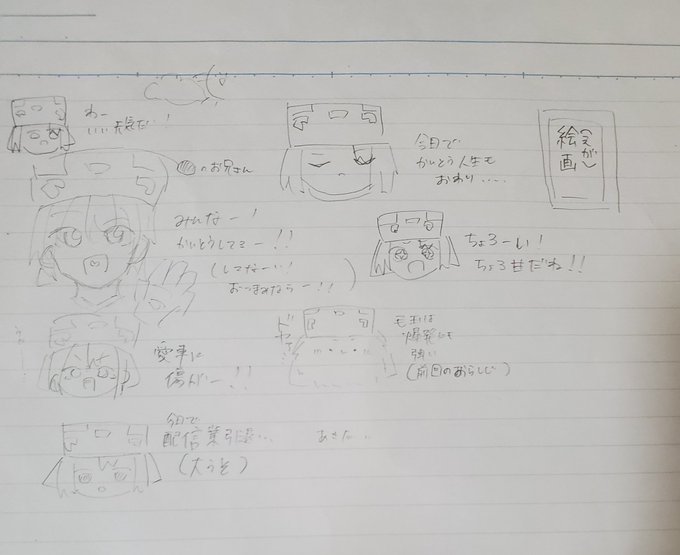 わー
いい天気だ!
のお兄さん
みんなー!
かいとうしてるー!!
(してなーい!
おつまみならー!!)
愛車に
傷がー!!
今日で
配信業引退…
(大うそ)
今日で
かいとう人生も
おわり……
絵画
(えが)
ちょろーい!
ちょろ甘だね!!
毛玉は
爆発にも
強い
(前回のあらすじ)
あきた…